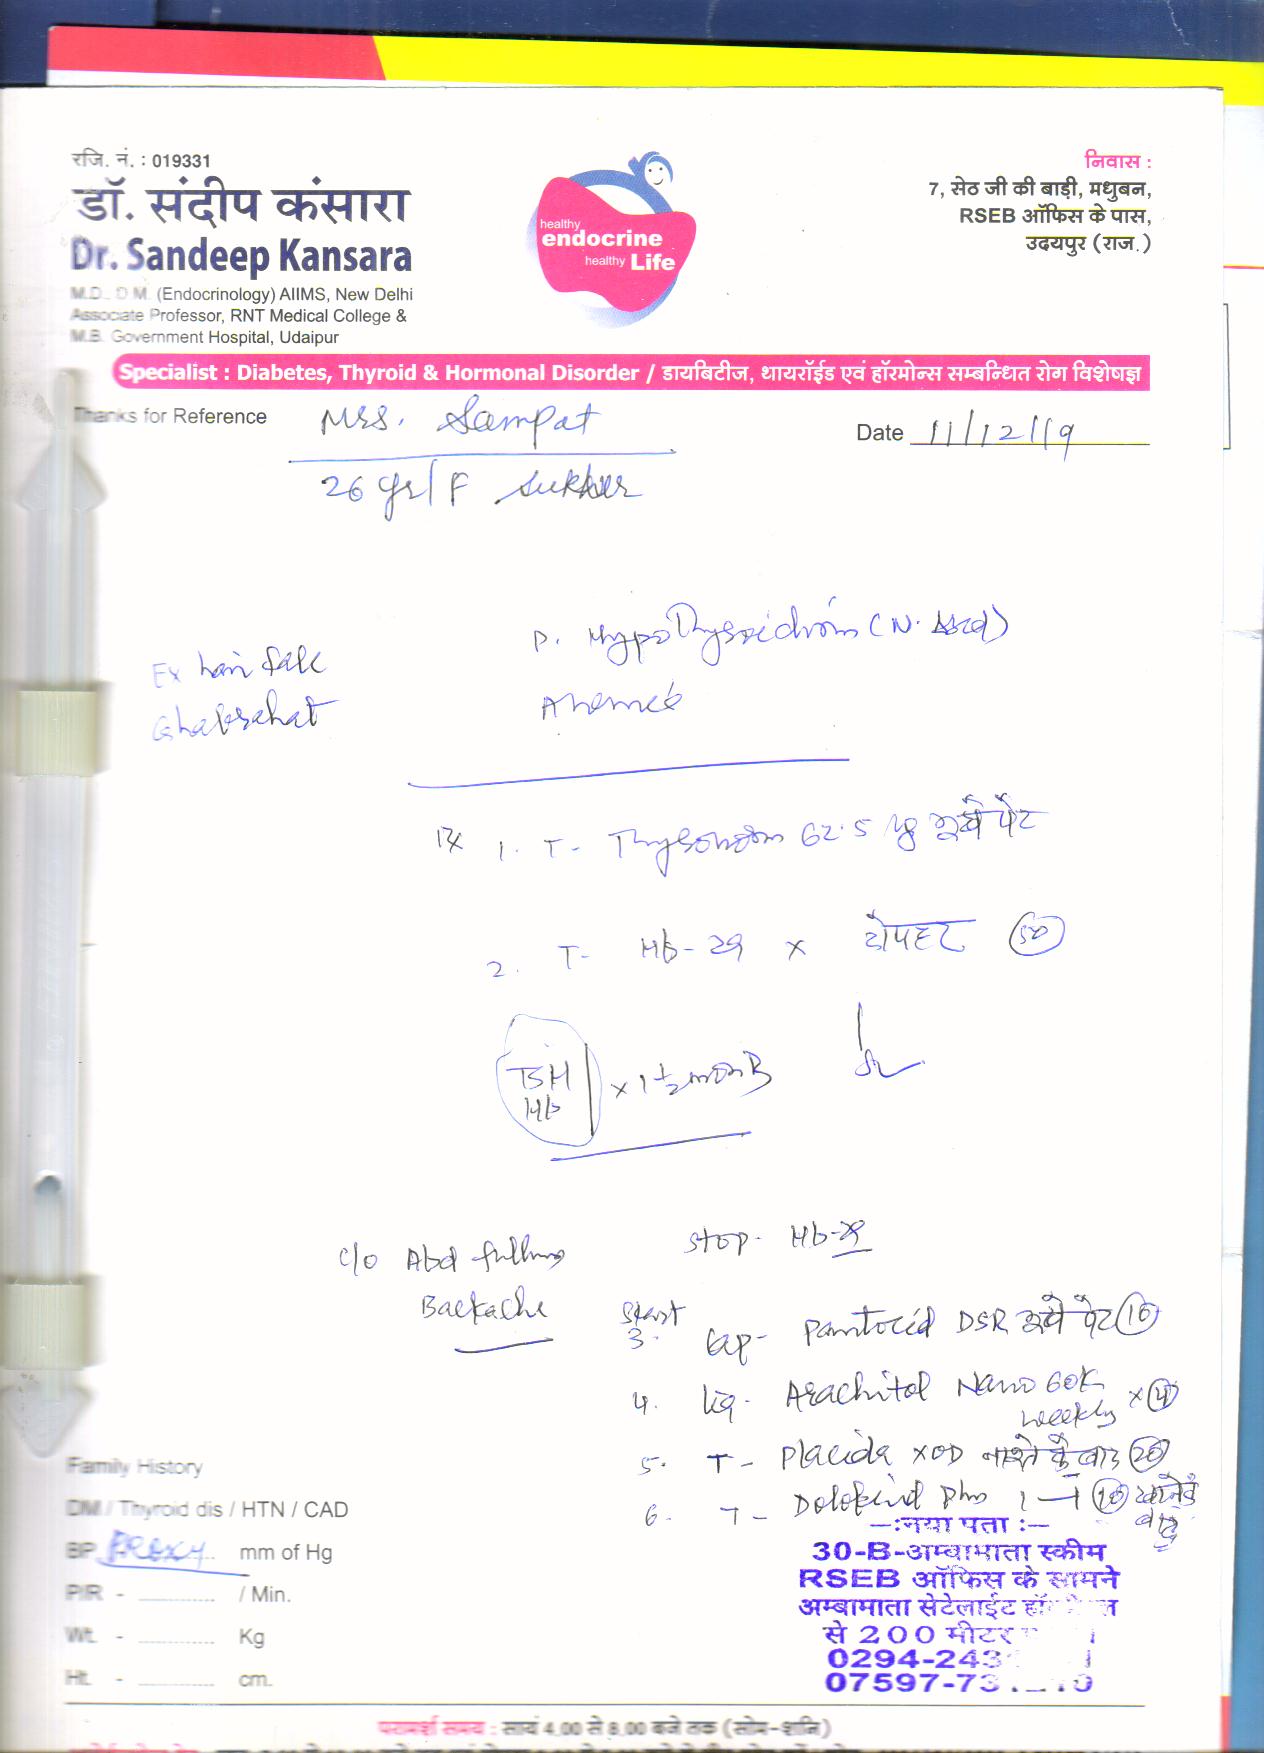 रजि. नं. : 019331
डॉ. संदीप कंसारा
Dr. Sandeep Kansara
M.D., D.M. (Endocrinology) AIIMS, New Delhi
Associate Professor, RNT Medical College &
M.B. Government Hospital, Udaipur
healthy
endocrine
healthy Life
निवास :
7, सेठ जी की बाड़ी, मधुबन,
RSEB ऑफिस के पास,
उदयपुर (राज.)
Specialist : Diabetes, Thyroid & Hormonal Disorder / डायबिटीज, थायरॉईड एवं हॉरमोन्स सम्बन्धित रोग विशेषज्ञ
Thanks for Reference Mrs. Sampat
Date 11/12/19
26 yr/F Sukher
P. Hypothyroidism (N.
Ex hair fall
Anemia
Ghabrahat
Rx 1. T- Thyronorm 62.5 µg भूखे पेट
2. T- Hb-29 x दोपहर
TSH
Hb x 1 1/2 month
c/o Abd fullness
Stop- Hb-29
Backache
Start
3. Cap- Pantocid DSR भूखे पेट (10)
4. liq- Arachitol Nano 60K
weekly x (4)
5. T- Placida x OD नाश्ते के बाद (20)
6. T- Dolokind Plus 1-1 (10) खाने के
बाद
Family History
DM / Thyroid dis / HTN / CAD
BP PROXY mm of Hg
P/R - ............. / Min.
Wt. - ............. Kg
Ht. - ............. cm.
—:नया पता :—
30-B-अम्बामाता स्कीम
RSEB ऑफिस के सामने
अम्बामाता सेटेलाईट
से 200 मीटर
0294-243
07597-73
परामर्श समय : सायं 4.00 से 8.00 बजे तक (सोम-शनि)